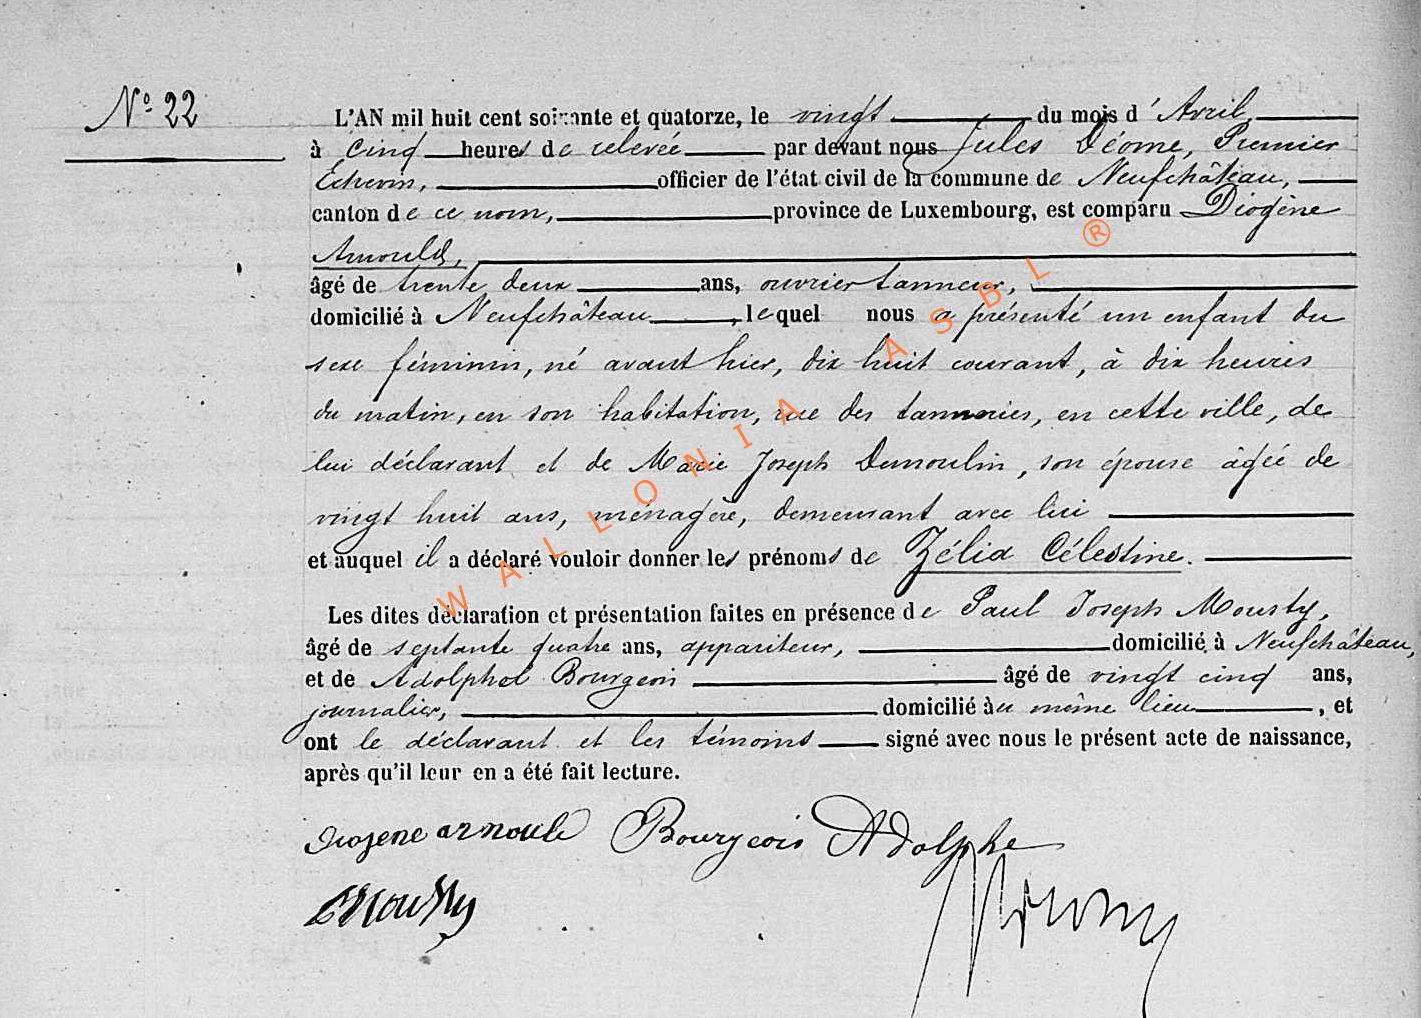 N° 22
L'AN mil huit cent soixante et quatorze, le vingt du mois d' Avril,
à cinq heures de relevée par devant nous Jules Déome, Premier
Echevin, officier de l'état civil de la commune de Neufchâteau,
canton de ce nom, province de Luxembourg, est comparu Diogène
Arnould,
âgé de trente deux ans, ouvrier tanneur,
domicilié à Neufchâteau, lequel nous a présenté un enfant du
sexe féminin, né avant hier, dix huit courant, à dix heures
du matin, en son habitation, rue des tanneries, en cette ville, de
lui déclarant et de Marie Joseph Dumoulin, son épouse âgée de
vingt huit ans, ménagère, demeurant avec lui
et auquel il a déclaré vouloir donner les prénoms de Zélia Célestine.
Les dites déclaration et présentation faites en présence de Paul Joseph Mousty,
âgé de septante quatre ans, appariteur, domicilié à Neufchâteau,
et de Adolphe Bourgeois âgé de vingt cinq ans,
journalier, domicilié au même lieu, et
ont le déclarant et les témoins signé avec nous le présent acte de naissance,
après qu'il leur en a été fait lecture.
diogene arnould Bourgeois Adolphe
Mousty
WALLONIA ASBL ®